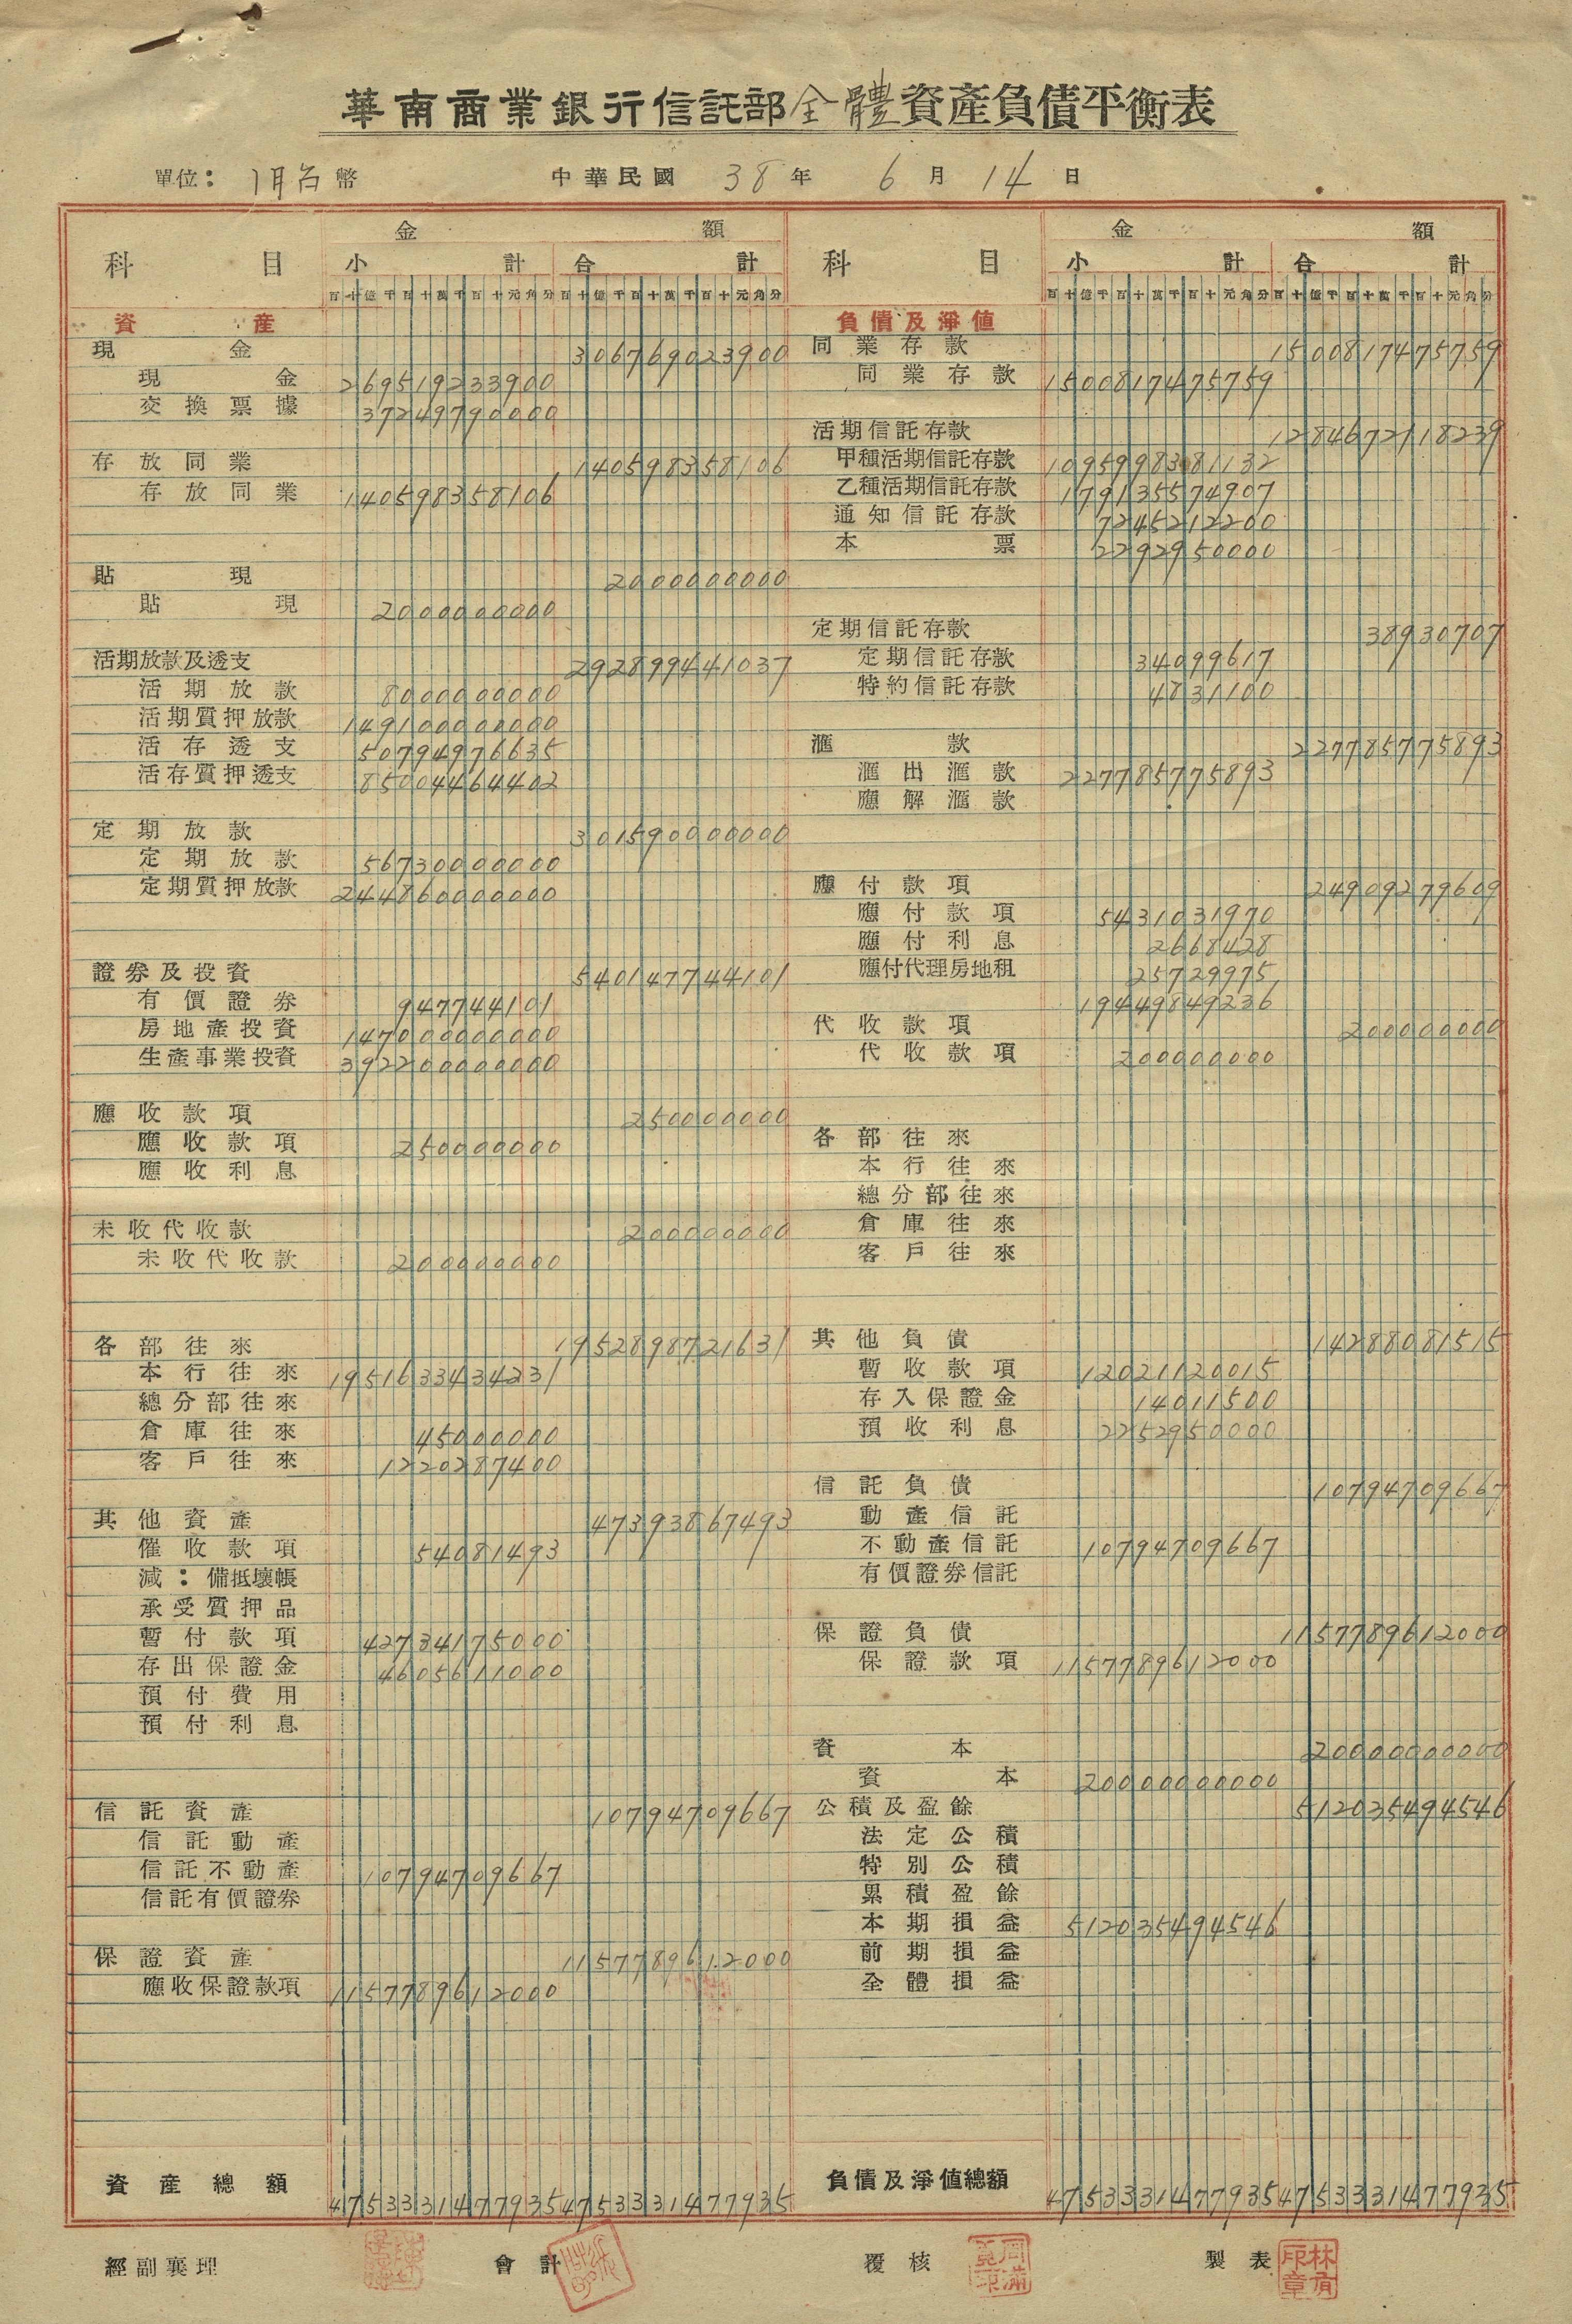 華南商業銀行信託部全體資產負債平衡表
單位：台幣 中華民國 38 年 6 月 14 日
科目 金額
小計 合計
百十億千百十萬千百十元角分 百十億千百十萬千百十元角分
資產
現金 306769023900
現金 269519233900
交換票據 37249790000
存放同業 140598358106
存放同業 140598358106
貼現 2000000000
貼現 2000000000
活期放款及透支 292899441037
活期放款 8000000000
活期質押放款 149100000000
活存透支 50794976635
活存質押透支 85004464402
定期放款 301590000000
定期放款 56730000000
定期質押放款 244860000000
證券及投資 540147744101
有價證券 947744101
房地產投資 147000000000
生產事業投資 392200000000
應收款項 250000000
應收款項 250000000
應收利息
未收代收款 200000000
未收代收款 200000000
各部往來 1952898721631
本行往來 1951633434231
總分部往來
倉庫往來 45000000
客戶往來 1220287400
其他資產 47393867493
催收款項 54081493
減：備抵壞帳
承受質押品
暫付款項 42734175000
存出保證金 4605611000
預付費用
預付利息
信託資產 10794709667
信託動產
信託不動產 10794709667
信託有價證券
保證資產 1157789612000
應收保證款項 1157789612000
資產總額 4753331477935 4753331477935
科目 金額
小計 合計
百十億千百十萬千百十元角分 百十億千百十萬千百十元角分
負債及淨值
同業存款 1500817475759
同業存款 1500817475759
活期信託存款 1284672118239
甲種活期信託存款 1095998381132
乙種活期信託存款 179135574907
通知信託存款 7245212200
本票 2292950000
定期信託存款 38930707
定期信託存款 34099607
特約信託存款 4831100
滙款 227785775893
滙出滙款 227785775893
應解滙款
應付款項 24909279609
應付款項 5431031970
應付利息 2668428
應付代理房地租 25729975
19449849236
代收款項 200000000
代收款項 200000000
各部往來
本行往來
總分部往來
倉庫往來
客戶往來
其他負債 14288081515
暫收款項 12021120015
存入保證金 14011500
預收利息 2252950000
信託負債 10794709667
動產信託
不動產信託 10794709667
有價證券信託
保證負債 1157789612000
保證款項 1157789612000
資本 20000000000
資本 20000000000
公積及盈餘 512035494546
法定公積
特別公積
累積盈餘
本期損益 512035494546
前期損益
全體損益
負債及淨值總額 4753331477935 4753331477935
經副襄理 會計 覆核 製表